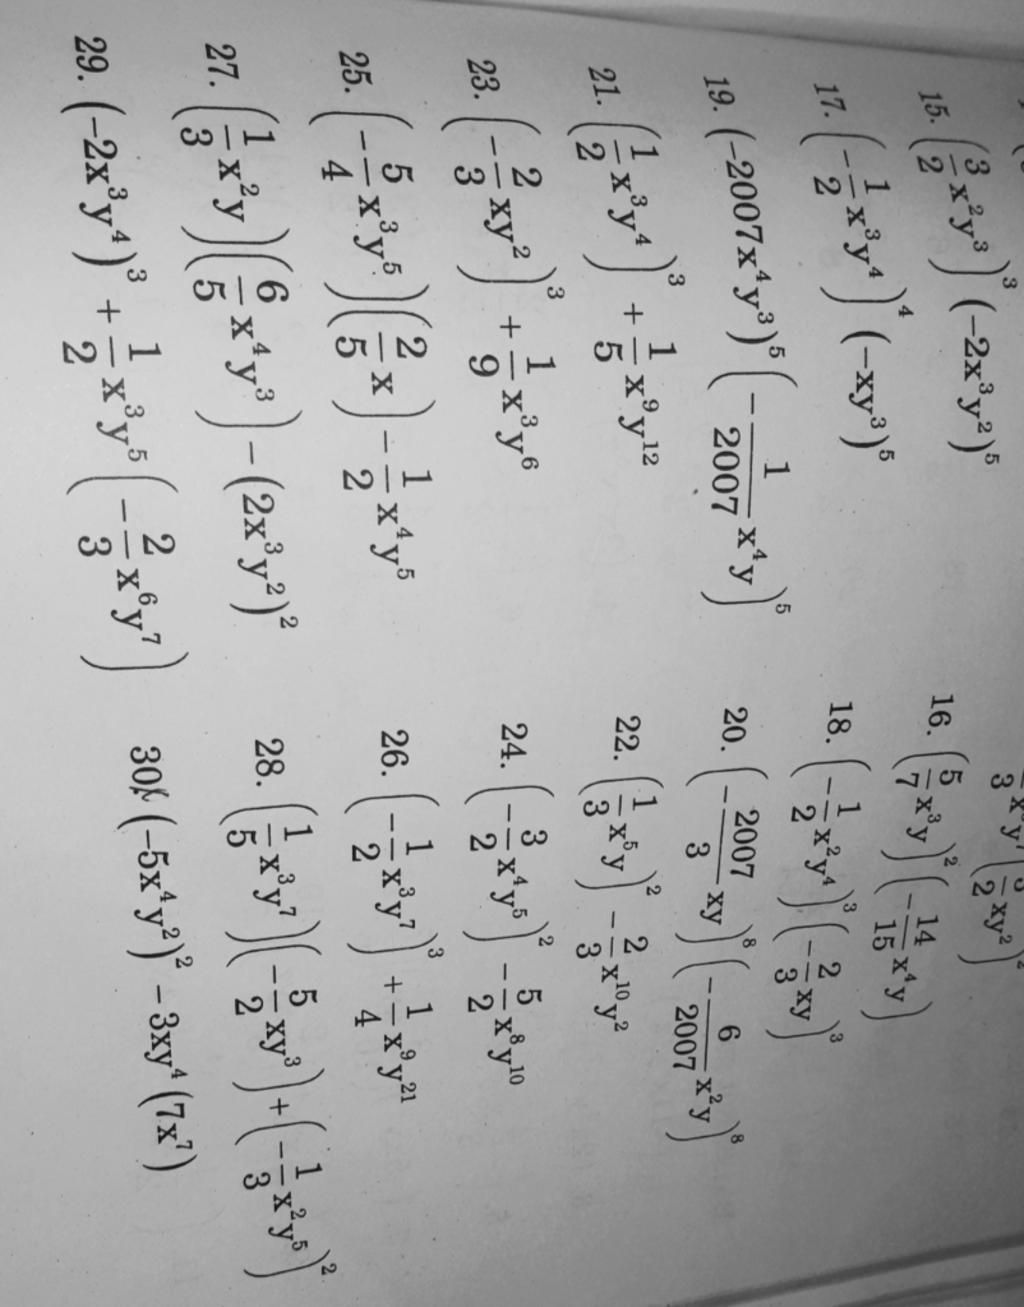 15. (3/2 x²y³)³ (-2x³y²)⁵
16. (5/7 x³y)² (-14/15 x⁴y)
17. (-1/2 x³y⁴)⁴ (-xy³)⁵
18. (-1/2 x²y⁴)³ (-2/3 xy)³
19. (-2007x⁴y³)⁵ (-1/2007 x⁴y)⁵
20. (-2007/3 xy)⁸ (-6/2007 x²y)⁸
21. (1/2 x³y⁴)³ + 1/5 x⁹y¹²
22. (1/3 x⁵y)² - 2/3 x¹⁰y²
23. (-2/3 xy²)³ + 1/9 x³y⁶
24. (-3/2 x⁴y⁵)² - 5/2 x⁸y¹⁰
25. (-5/4 x³y⁵)(2/5 x) - 1/2 x⁴y⁵
26. (-1/2 x³y⁷)³ + 1/4 x⁹y²¹
27. (1/3 x²y)(6/5 x⁴y³) - (2x³y²)²
28. (1/5 x³y⁷)(-5/2 xy³) + (-1/3 x²y⁵)²
29. (-2x³y⁴)³ + 1/2 x³y⁵(-2/3 x⁶y⁷)
30. (-5x⁴y²)² - 3xy⁴(7x⁷)